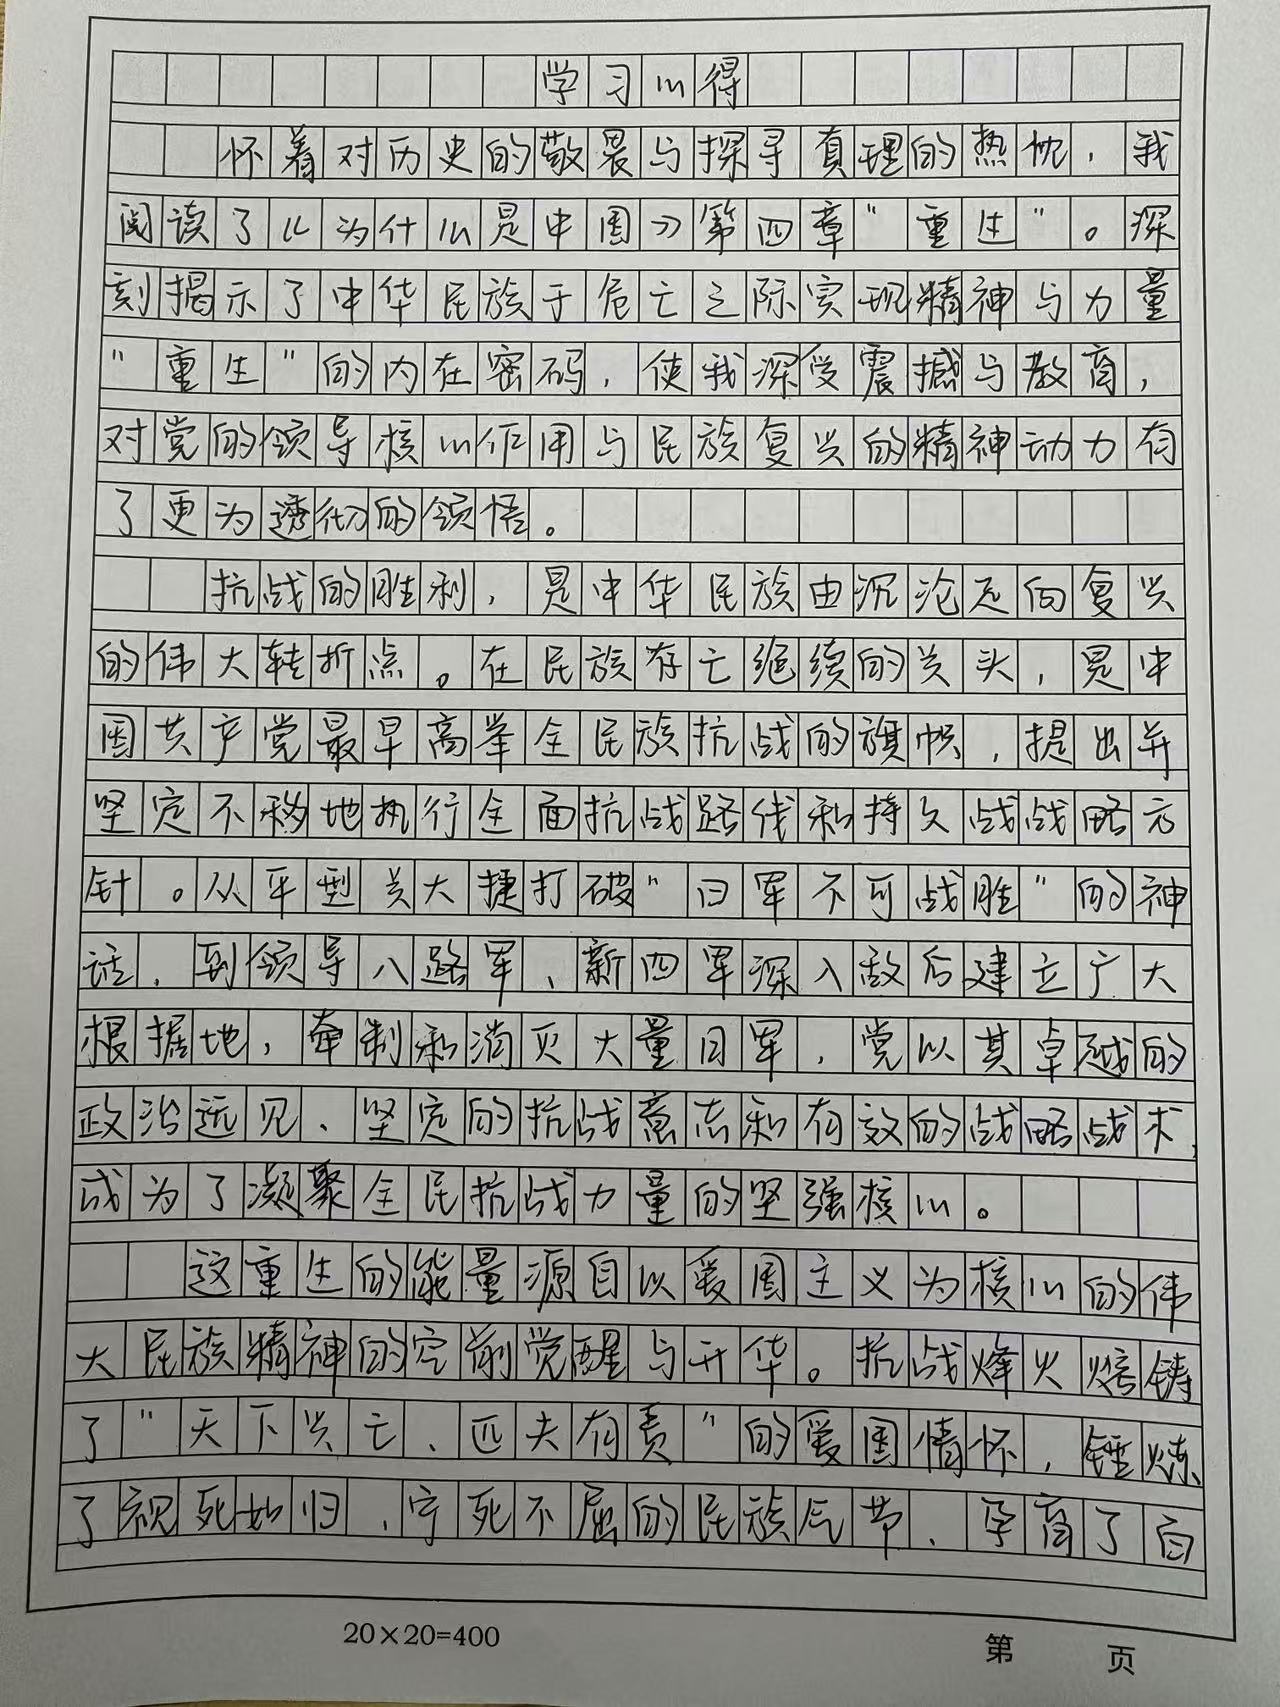 学习心得
怀着对历史的敬畏与探寻真理的热忱，我
阅读了《为什么是中国》第四章“重生”。深
刻揭示了中华民族于危亡之际实现精神与力量
“重生”的内在密码，使我深受震撼与教育，
对党的领导核心作用与民族复兴的精神动力有
了更为透彻的领悟。
抗战的胜利，是中华民族由沉沦走向复兴
的伟大转折点。在民族存亡绝续的关头，是中
国共产党最早高举全民族抗战的旗帜，提出并
坚定不移地执行全面抗战路线和持久战战略方
针。从平型关大捷打破“日军不可战胜”的神
话，到领导八路军、新四军深入敌后建立广大
根据地，牵制和消灭大量日军，党以其卓越的
政治远见、坚定的抗战意志和有效的战略战术，
成为了凝聚全民抗战力量的坚强核心。
这重生的能量源自以爱国主义为核心的伟
大民族精神的空前觉醒与升华。抗战烽火熔铸
了“天下兴亡、匹夫有责”的爱国情怀，锤炼
了视死如归、宁死不屈的民族气节、孕育了百
20×20=400
第 页